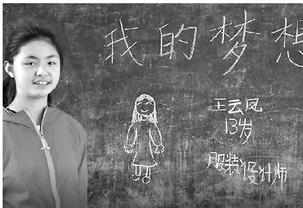 我的梦想
王云凤
13岁
服装设计师